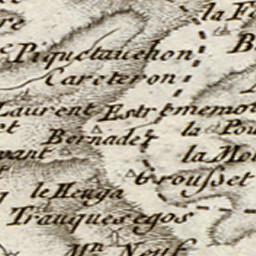 la Fe
re
Piquetauchon
Careteron
Laurent Estrememot
et
Bernadet
la Pou
vant
la Mou
Grousset
le Heuga
Trauquesegos
Mn. Neuf